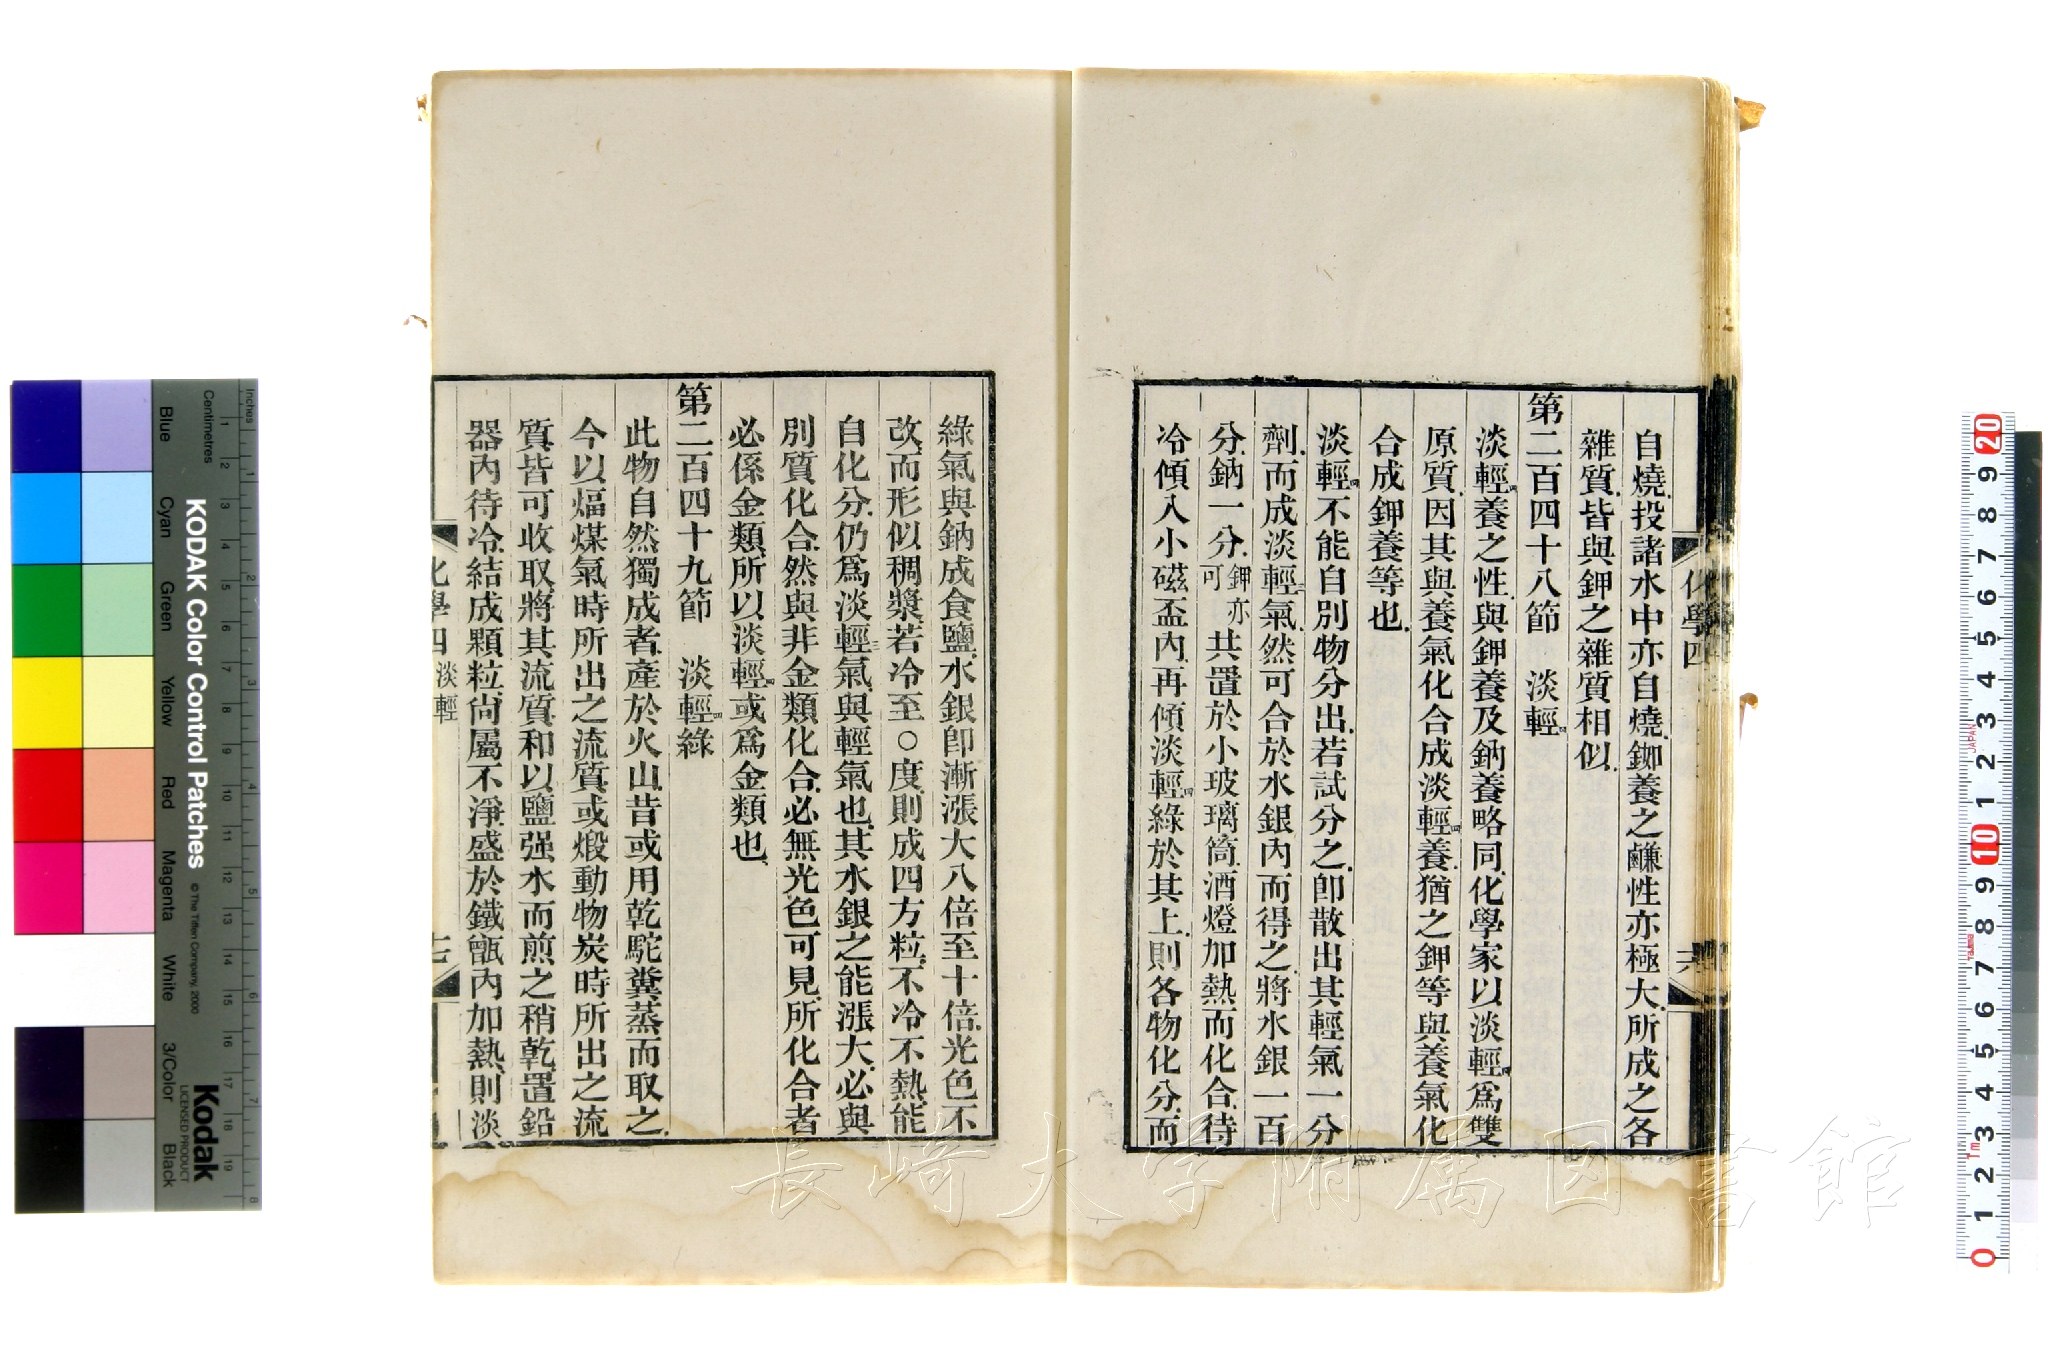 自燒.投諸水中亦自燒.鉫養之鹻性亦極大.所成之各
雜質.皆與鉀之雜質相似.
第二百四十八節 淡輕四
淡輕四養之性.與鉀養及鈉養略同.化學家以淡輕四爲雙
原質.因其與養氣化合成淡輕四養.猶之鉀等與養氣化
合成鉀養等也.
淡輕四不能自別物分出.若試分之.卽散出其輕氣一分
劑.而成淡輕三氣.然可合於水銀內而得之.將水銀一百
分.鈉一分.鉀亦可共置於小玻璃筒.酒燈加熱而化合.待
冷傾入小磁盃內.再傾淡輕四綠於其上.則各物化分.而
化學四
六
綠氣與鈉成食鹽.水銀卽漸漲大八倍至十倍.光色不
改.而形似稠漿.若冷至○度.則成四方粒.不冷不熱.能
自化分.仍爲淡輕三氣.與輕氣也.其水銀之能漲大.必與
別質化合.然與非金類化合.必無光色可見.所化合者
必係金類.所以淡輕四或爲金類也.
第二百四十九節 淡輕四綠
此物自然獨成者.產於火山.昔或用乾駝糞蒸而取之.
今以煏煤氣時所出之流質.或煅動物炭時所出之流
質.皆可收取.將其流質和以鹽强水而煎之稍乾.置鉛
器內待冷.結成顆粒.尙屬不淨.盛於鐵甑內加熱.則淡
化學四 淡輕
七
長崎大学附属図書館
KODAK Color Control Patches
© The Tiffen Company, 2000
Kodak
LICENSED PRODUCT
Blue Cyan Green Yellow Red Magenta White 3/Color Black
Inches 1 2 3 4 5 6 7 8
Centimetres 1 2 3 4 5 6 7 8 9 10 11 12 13 14 15 16 17 18 19
0 1 2 3 4 5 6 7 8 9 10 1 2 3 4 5 6 7 8 9 20
JAPAN